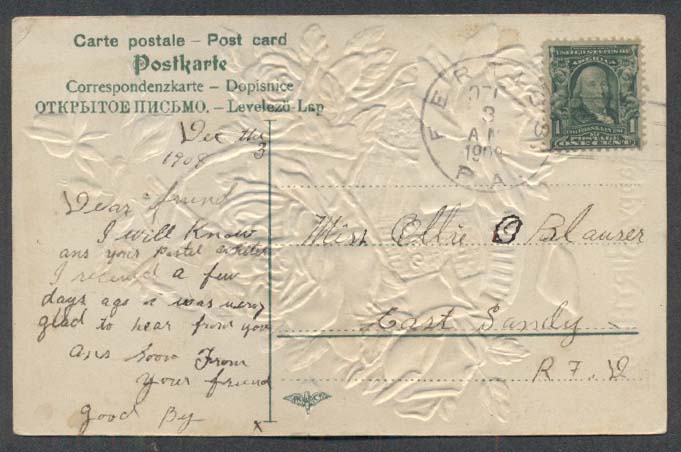 Carte postale – Post card
Postkarte
Correspondenzkarte – Dopisnice
ОТКРЫТОЕ ПИСЬМО. – Levelező-Lap
Dec the 3
1908
Dear friend
I will know
ans your postal
I received a few
days ago it was very
glad to hear from you
ans soon From
your friend
good By
x
FERTIG
3
AM
1908
PA.
UNITED STATES OF
AMERICA
1 1
POSTAGE
ONE CENT
Miss Ellie O Blauser
East Sandy
R F. D